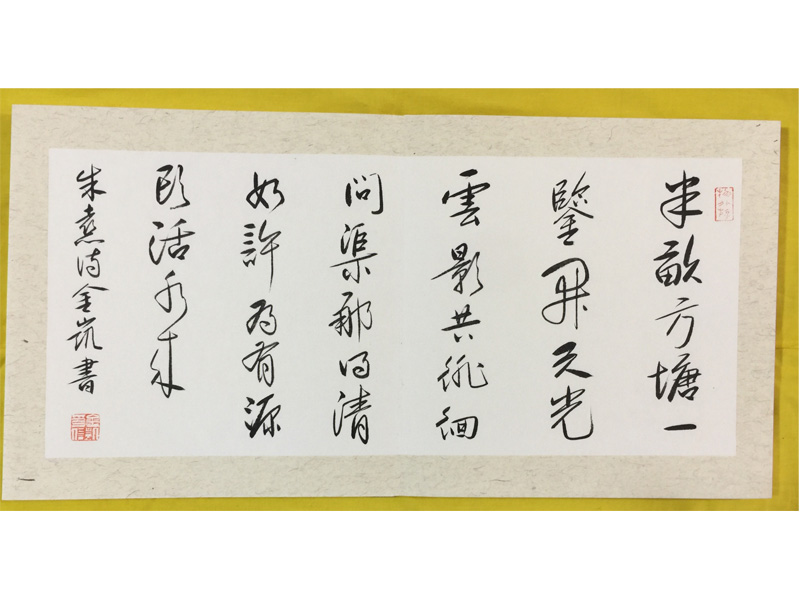 半畝方塘一
鑒開天光
雲影共徘徊
問渠那得清
如許為有源
頭活水來
朱熹詩金凱書